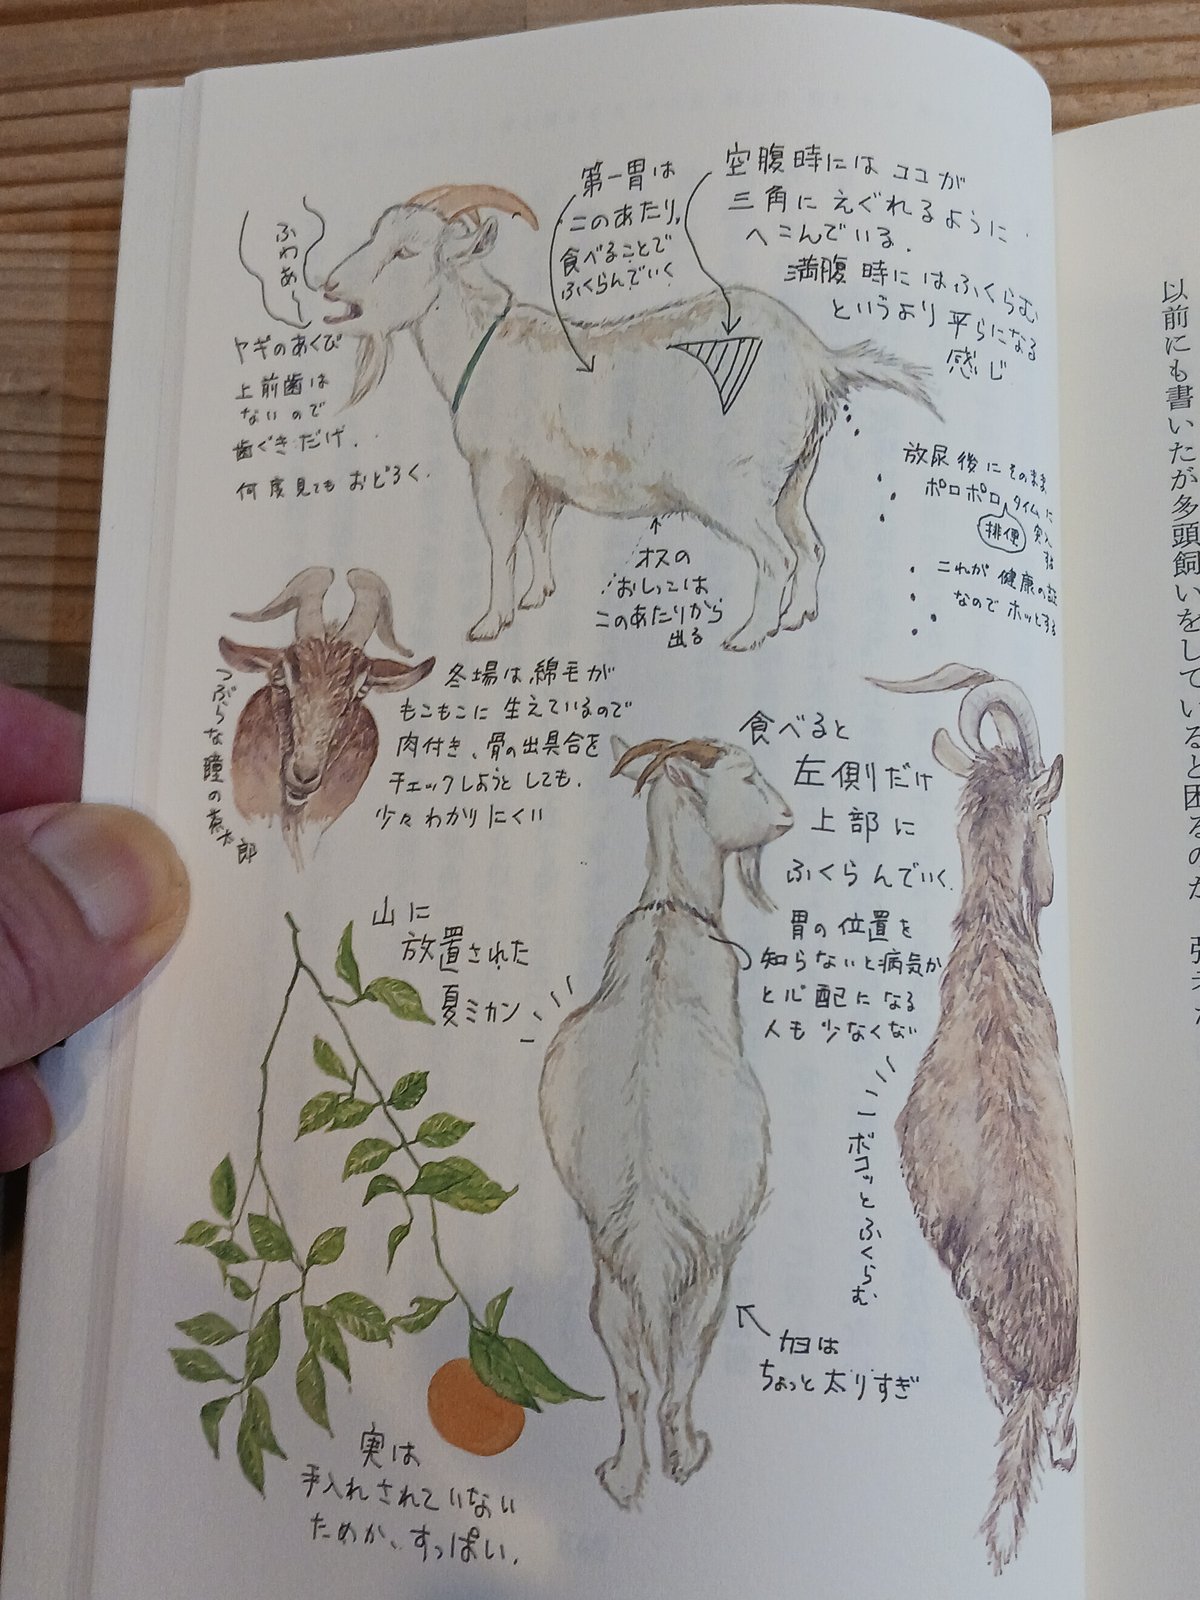 第一胃は
このあたり。
食べることで
ふくらんでいく
空腹時には ココが
三角に えぐれるように
へこんでいる.
満腹時にはふくらむ
というより 平らになる
感じ
ふわぁ〜
ヤギのあくび
上前歯は
ないので
歯ぐきだけ.
何度見ても おどろく.
放尿後にそのまま
ポロポロタイムに
排便
突入
する
これが 健康の証
なので ホッとする
オスの
おしっこは
このあたりから
出る
つぶらな瞳の茶太郎
冬場は、綿毛が
もこもこに 生えているので
肉付き、骨の出具合を
チェックしようと しても.
少々わかりにくい
食べると
左側だけ
上部に
ふくらんでいく.
胃の位置を
知らないと病気か
と心配になる
人も少なくない
ボコッとふくらむ
カヨは
ちょっと太りすぎ
山に
放置された
夏ミカン
実は
手入れされていない
ためか、すっぱい.
以前にも書いたが多頭飼いをしていると困るのが